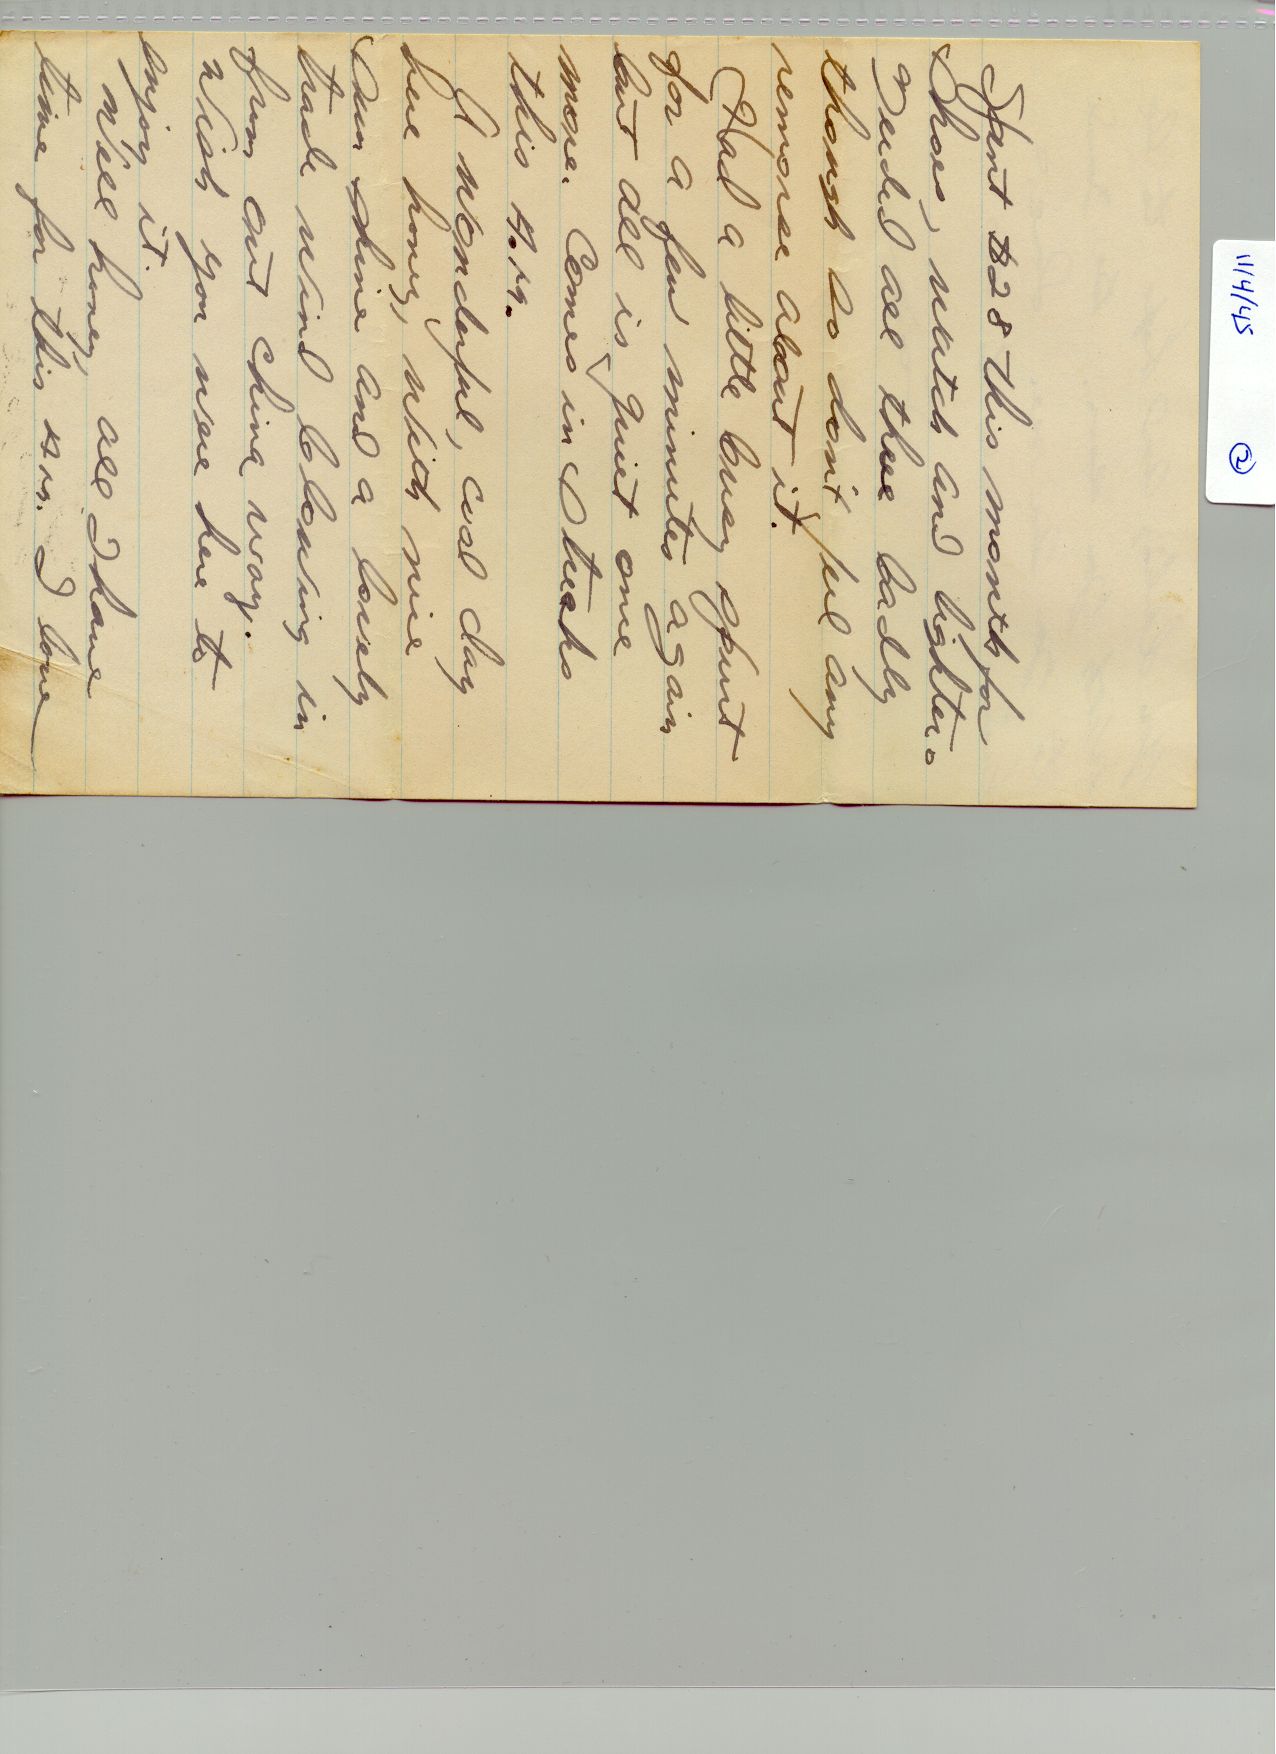 11/4/45 2
Spent $28 this month for
Shoes, watch and lighter.
Needed all three badly
though so don't feel any
remorse about it.
Had a little busy spurt
for a few minutes again
but all is quiet one
more. Comes in streaks
this A.M.
A wonderful, cool day
here honey, with nice
Sun shine and a lovely
trade wind blowing in
from out China way.
Wish you were here to
enjoy it.
Well honey, all I have
time for this A.M. I love